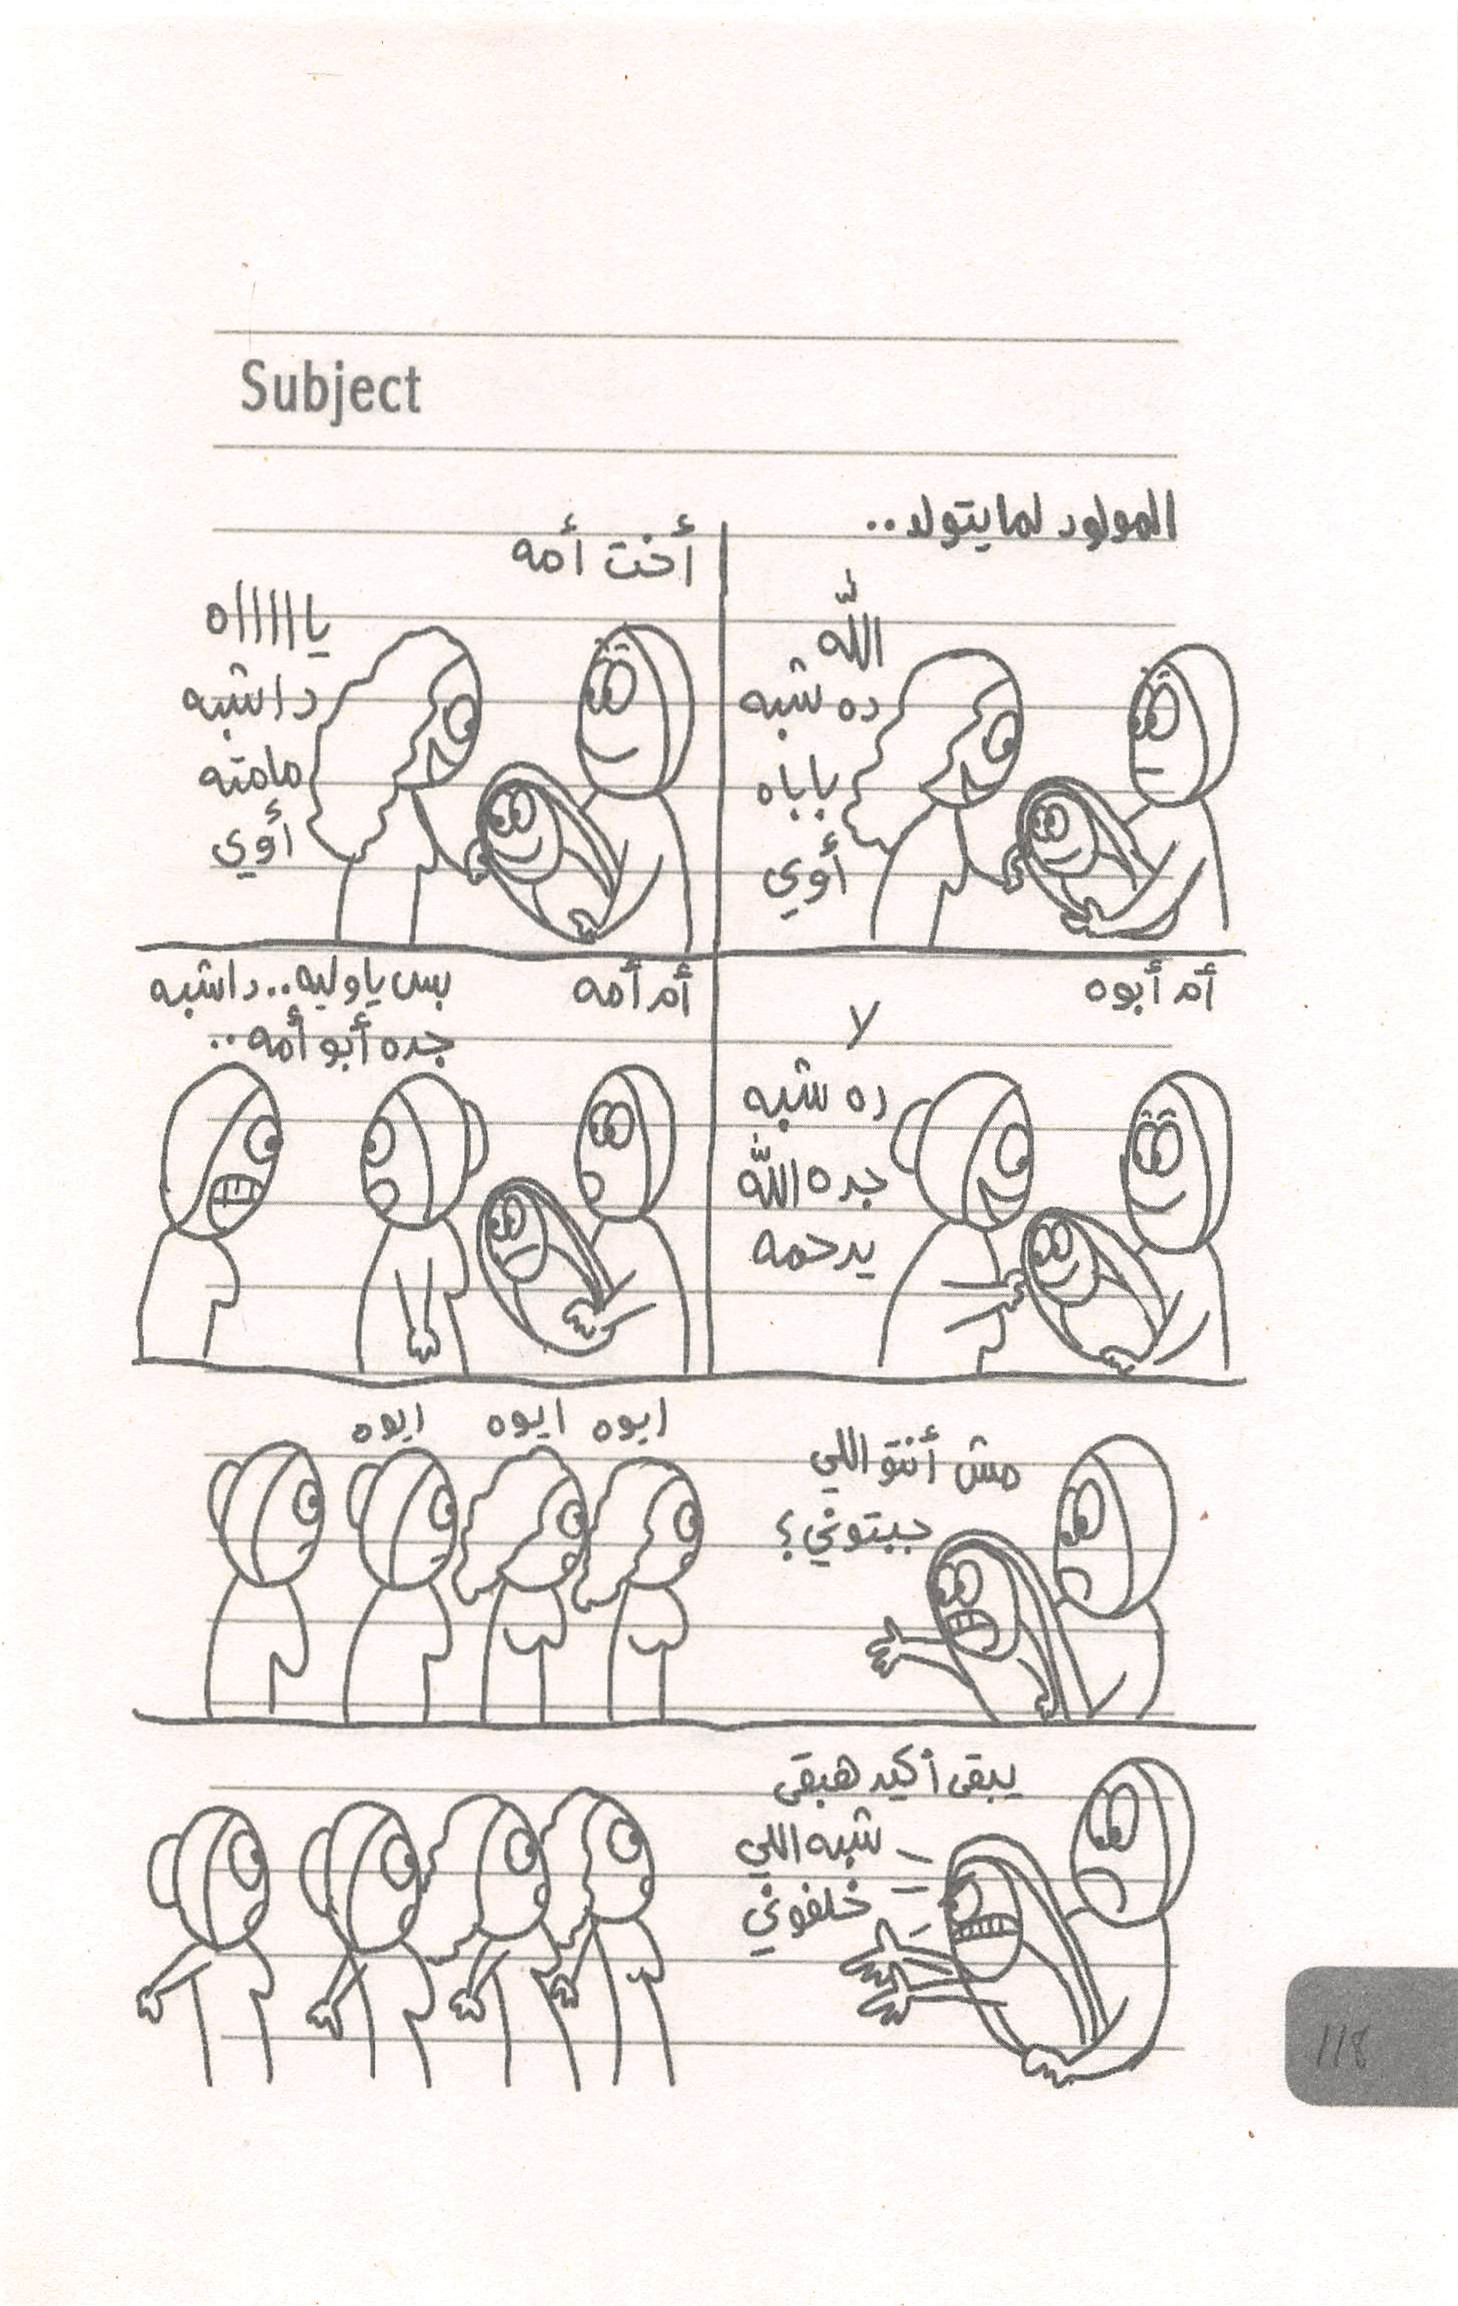 Subject
المولود لما يتولد..
الله
ده شبه
باباه
أوي
أخت أمه
يااااااه
دا شبه
مامته
أوي
أم أبوه
لا
ده شبه
جده الله
يرحمه
أم أمه
بس يا وليه.. دا شبه
جده أبو أمه..
مش أنتو اللي
جبتوني؟
ايوه ايوه ايوه
يبقى أكيد هبقى
شبه اللي
خلفوني
118